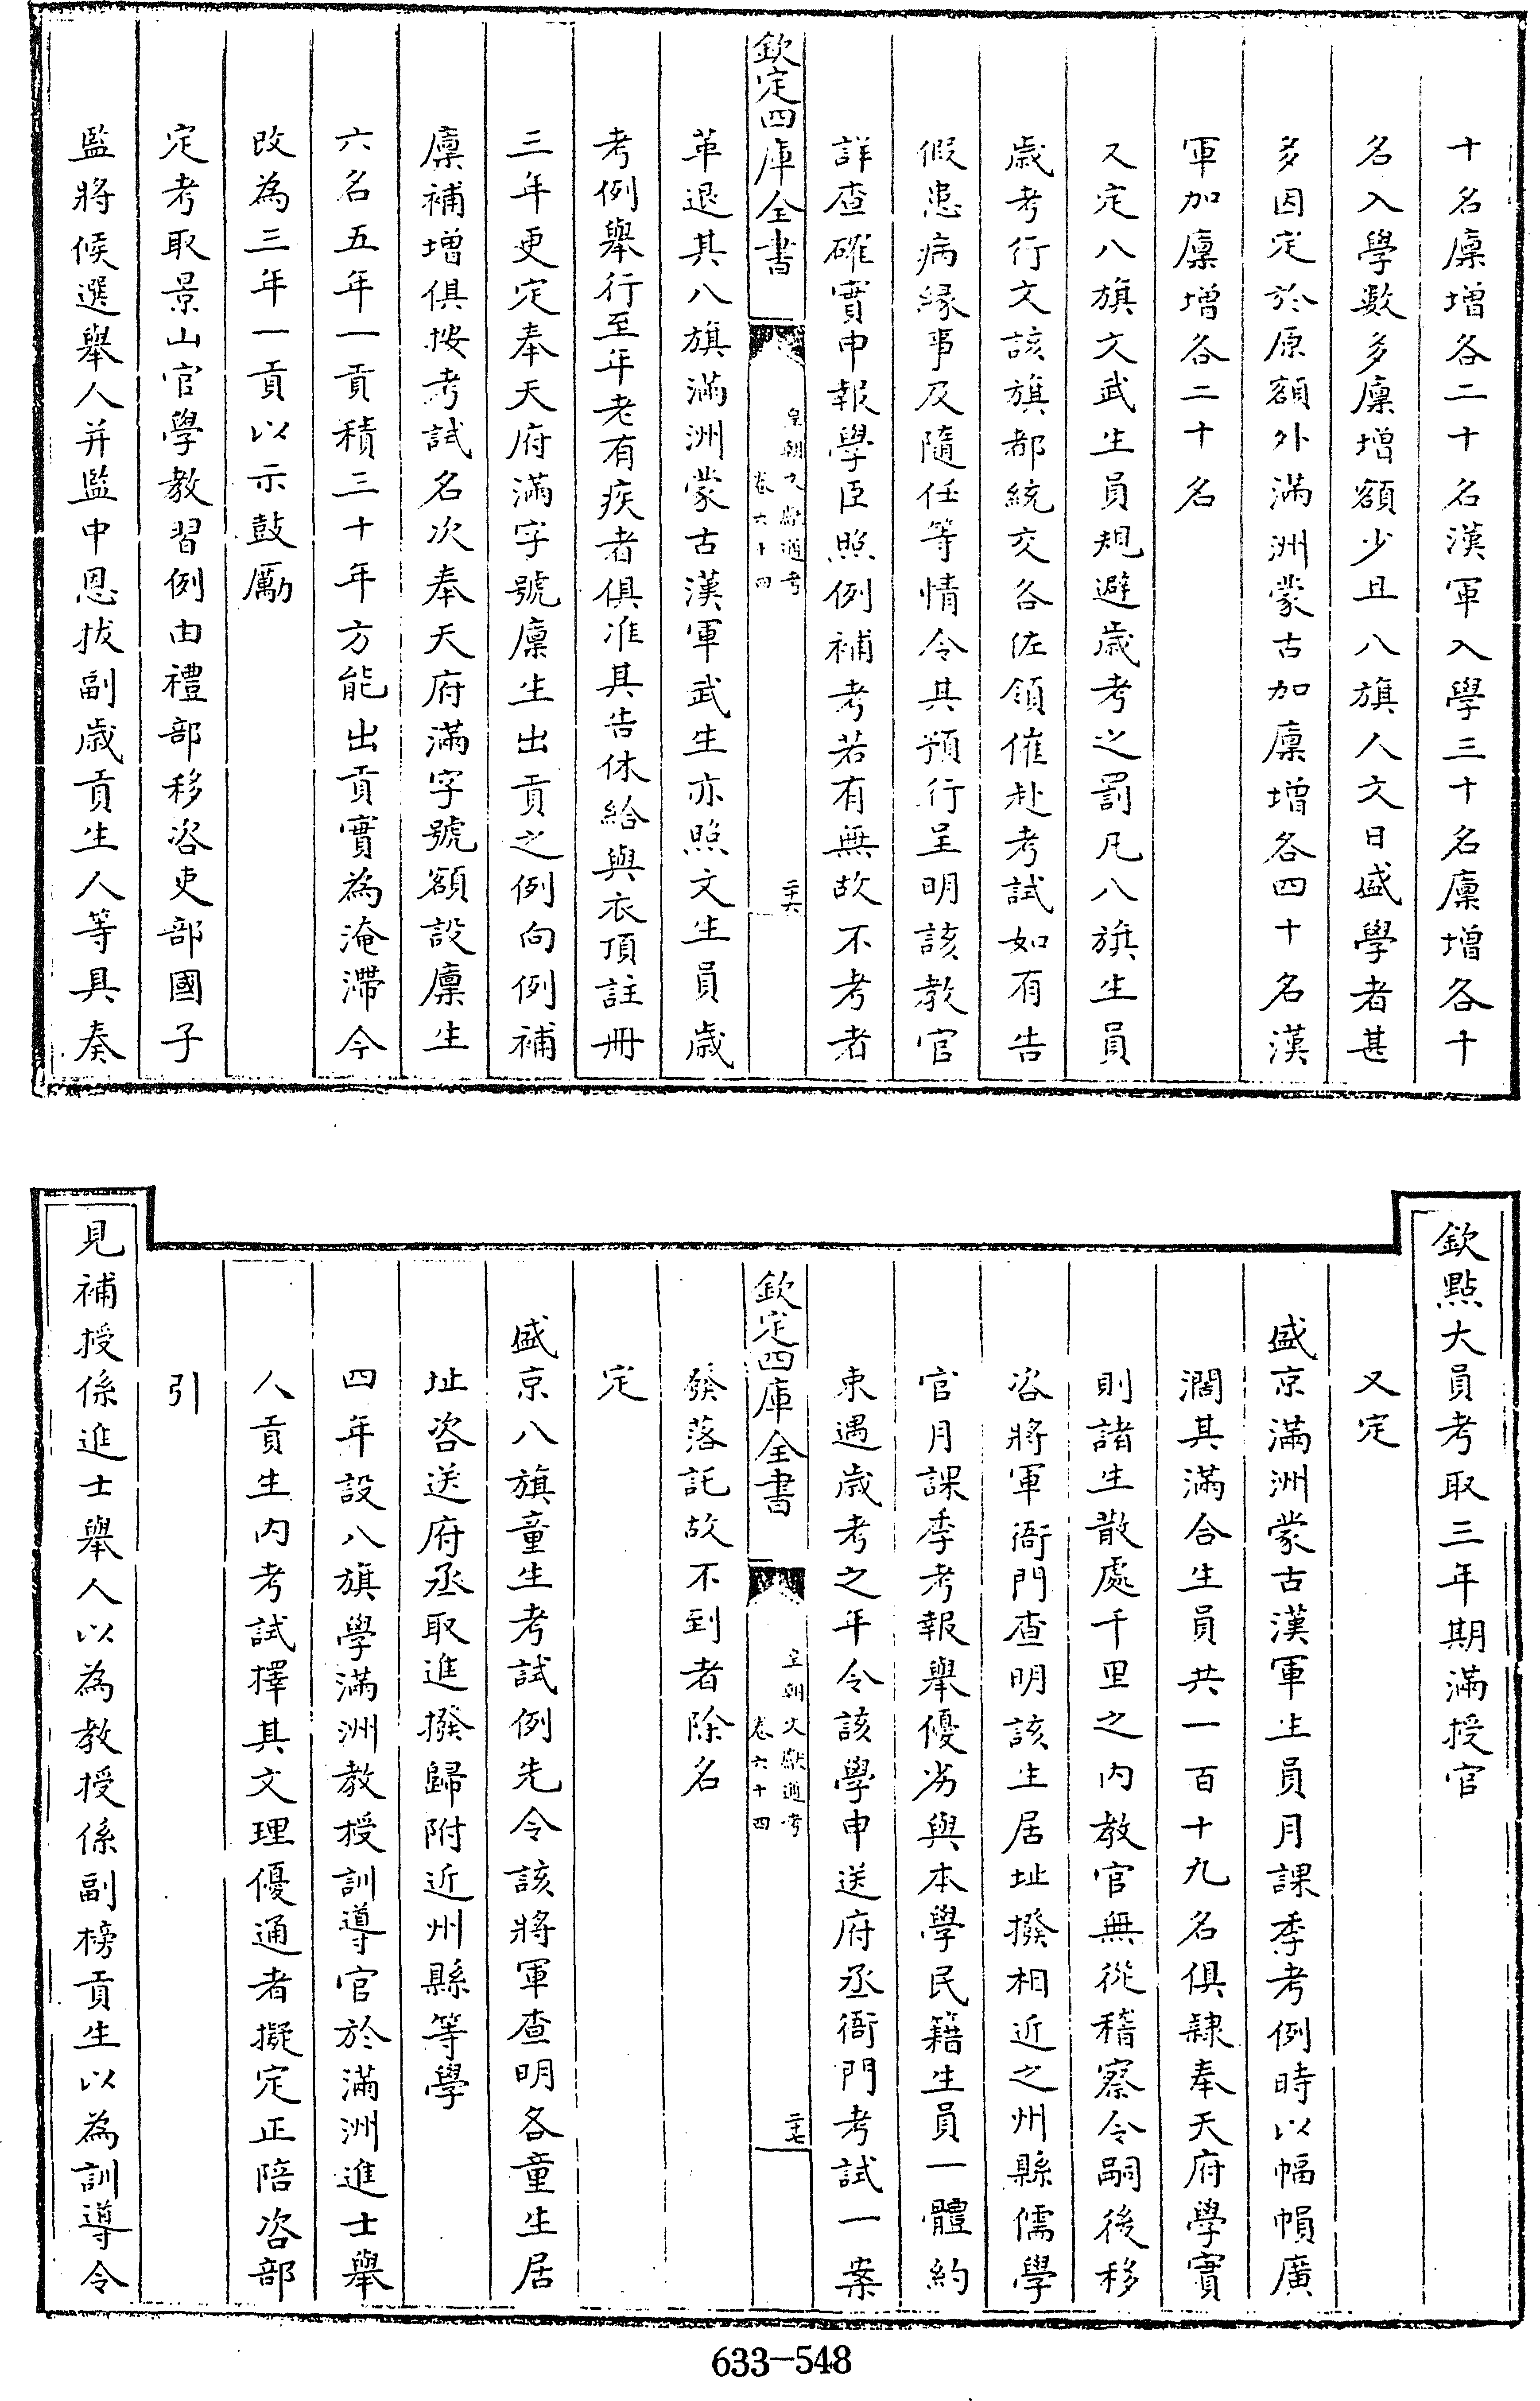 十名廩增各二十名漢軍入學三十名廩增各十
名入學數多廩增額少且八旗人文日盛學者甚
多因定於原額外滿洲蒙古加廩增各四十名漢
軍加廩增各二十名
又定八旗文武生員規避歲考之罰凡八旗生員
歲考行文該旗都統交各佐領催赴考試如有告
假患病緣事及隨任等情令其預行呈明該教官
詳查確實申報學臣照例補考若有無故不考者
欽定四庫全書
皇朝文獻通考
卷六十四
二十六
革退其八旗滿洲蒙古漢軍武生亦照文生員歲
考例舉行至年老有疾者俱准其告休給與衣頂註冊
三年更定奉天府滿字號廩生出貢之例向例補
廩補增俱按考試名次奉天府滿字號額設廩生
六名五年一貢積三十年方能出貢實為淹滯今
改為三年一貢以示鼓勵
定考取景山官學教習例由禮部移咨吏部國子
監將候選舉人并監中恩拔副歲貢生人等具奏
欽點大員考取三年期滿授官
又定
盛京滿洲蒙古漢軍生員月課季考例時以幅幀廣
濶其滿合生員共一百十九名俱隸奉天府學實
則諸生散處千里之內教官無從稽察令嗣後移
咨將軍衙門查明該生居址撥相近之州縣儒學
官月課季考報舉優劣與本學民籍生員一體約
束遇歲考之年令該學申送府丞衙門考試一案
欽定四庫全書
皇朝文獻通考
卷六十四
二十七
發落託故不到者除名
定
盛京八旗童生考試例先令該將軍查明各童生居
址咨送府丞取進撥歸附近州縣等學
四年設八旗學滿洲教授訓導官於滿洲進士舉
人貢生內考試擇其文理優通者擬定正陪咨部
引
見補授係進士舉人以為教授係副榜貢生以為訓導令
633-548